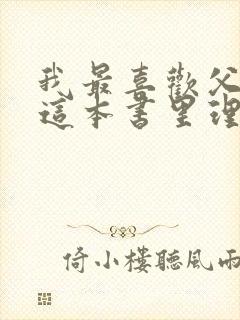 我最喜歡父
這本書里理
倚小樓聽風雨